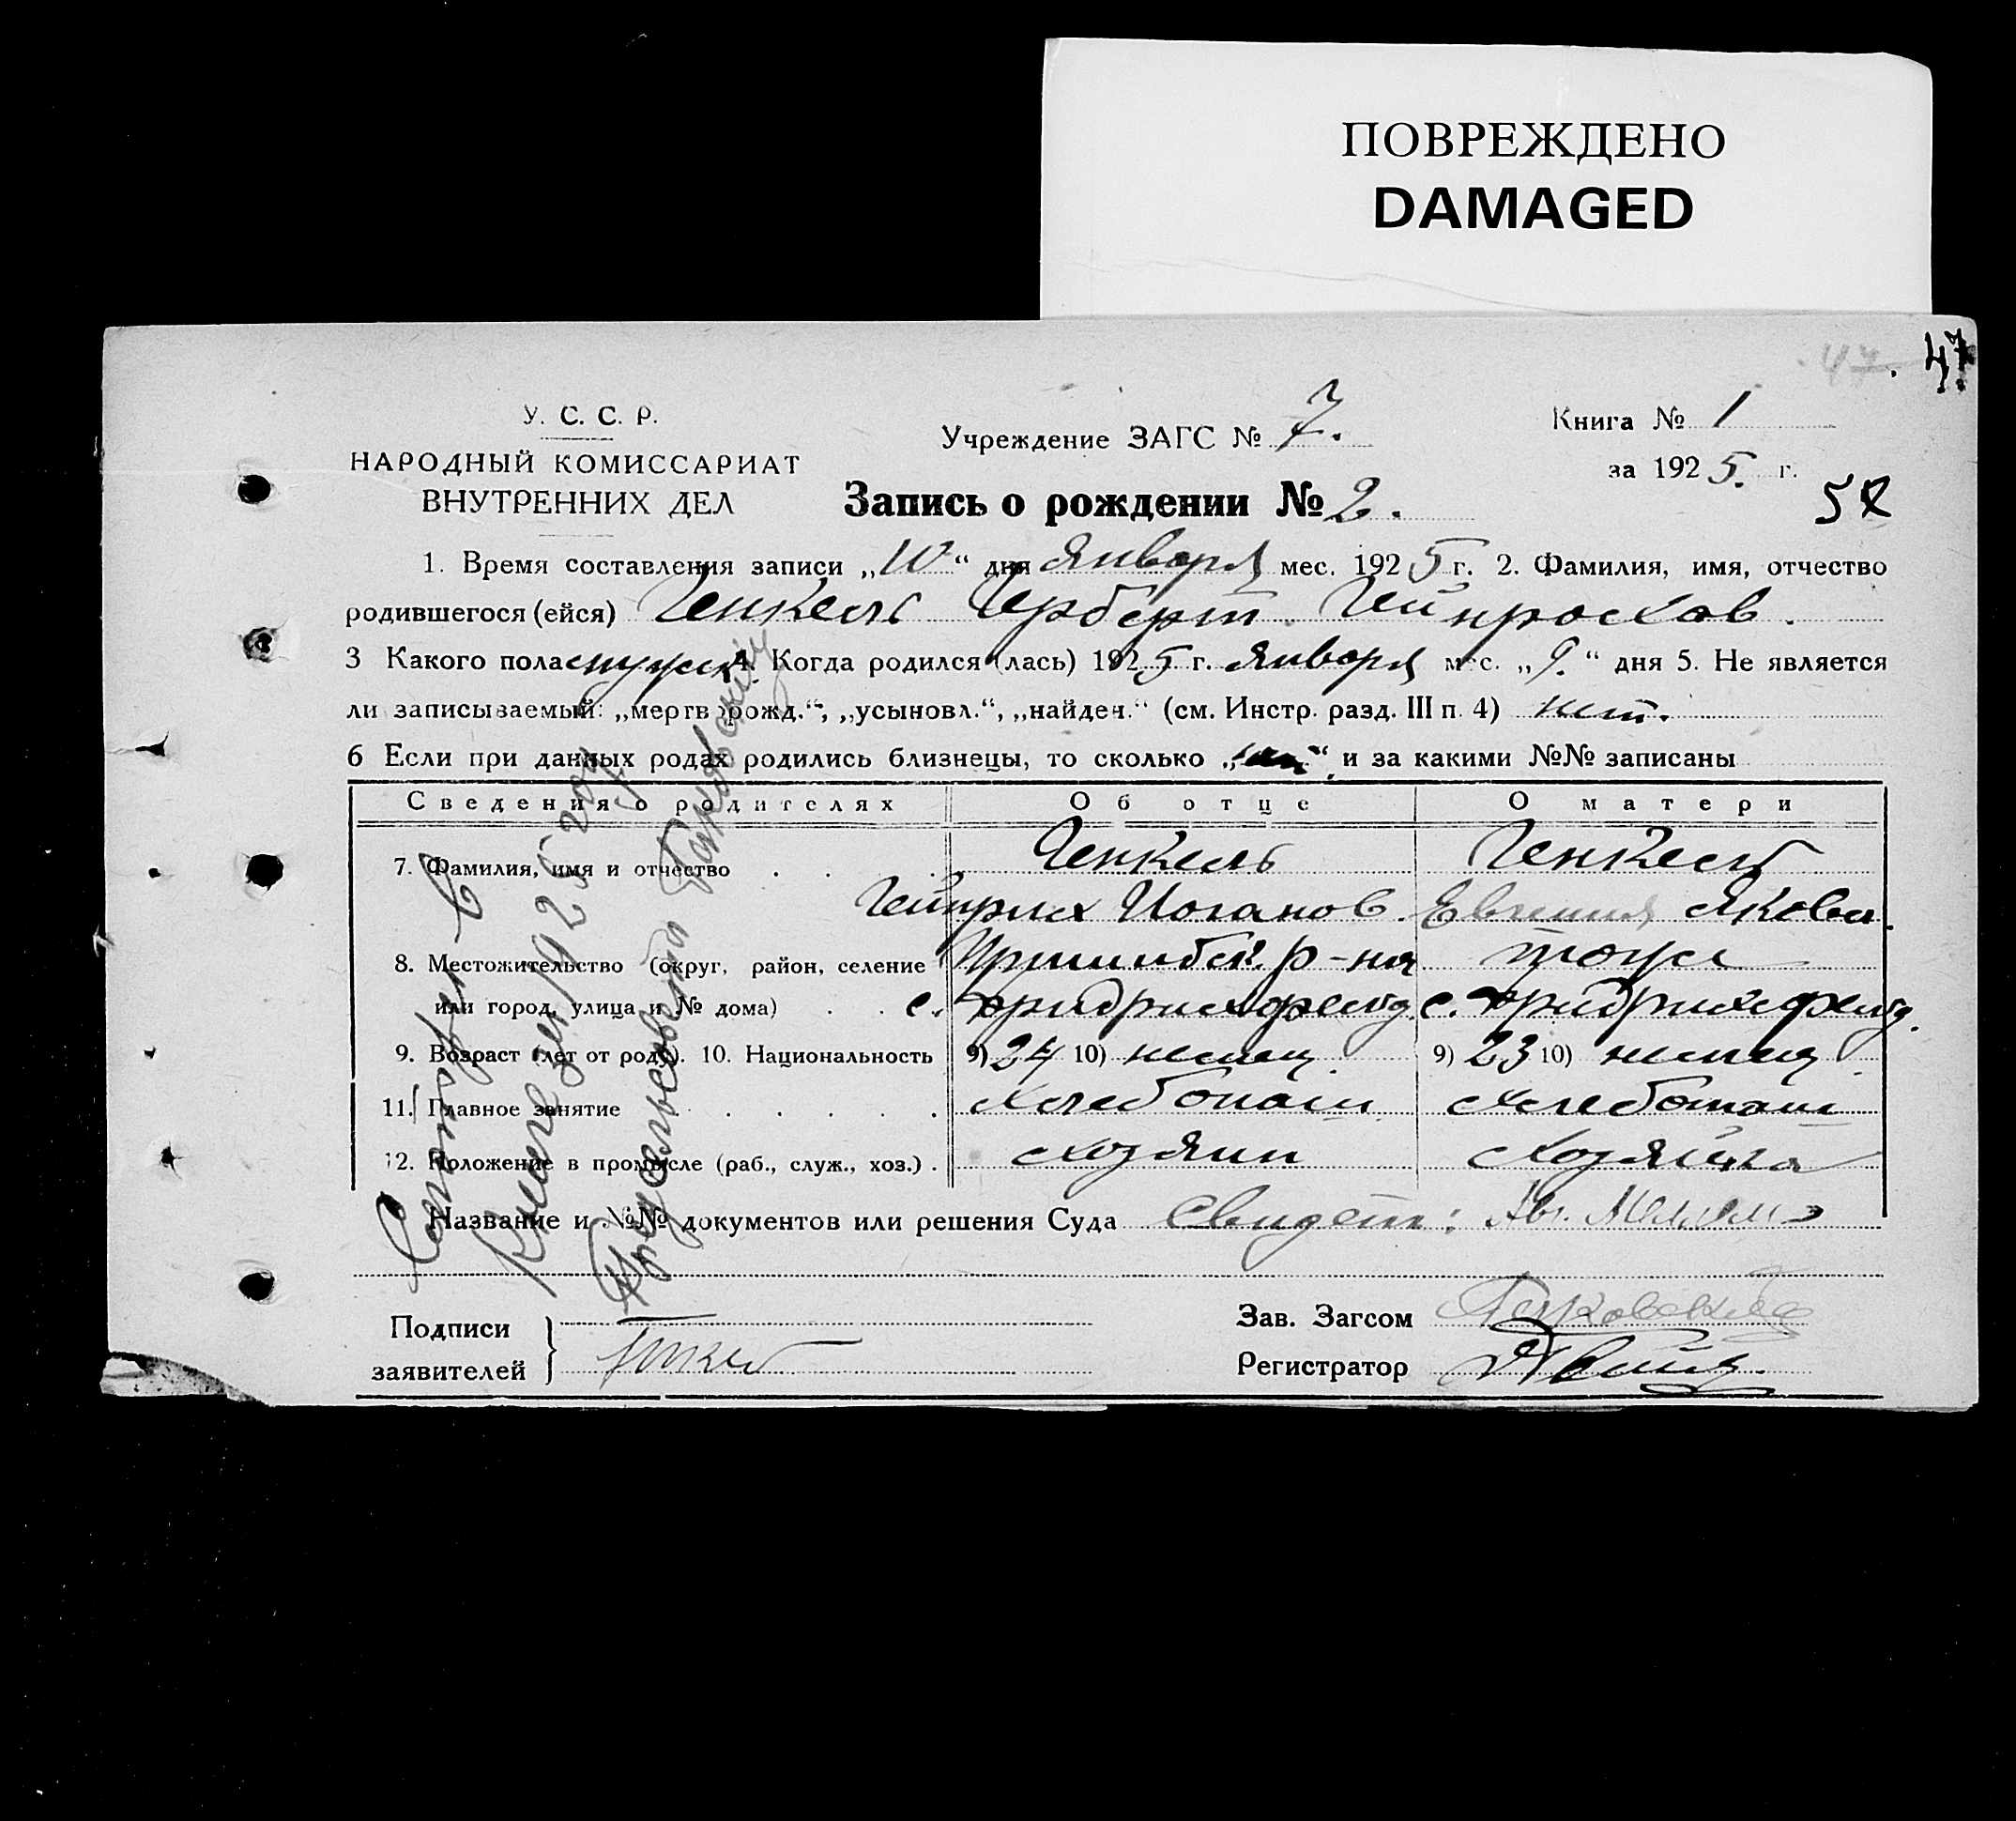 ПОВРЕЖДЕНО
DAMAGED
47
47
У. С. С. Р.
НАРОДНЫЙ КОМИССАРИАТ
ВНУТРЕННИХ ДЕЛ
Учреждение ЗАГС № 7.
Книга № 1
за 1925. г.
Запись о рождении № 2.
1. Время составления записи „10“ дня Января мес. 1925 г. 2. Фамилия, имя, отчество
родившегося (ейся) Генкель Герберт Гейнрохов.
3 Какого пола мужск. 4. Когда родился (лась) 1925 г. Января мес. „9.“ дня 5. Не является
ли записываемый: „мертворожд.“, „усыновл.“, „найден.“ (см. Инстр. разд. III п. 4) нет.
6 Если при данных родах родились близнецы, то сколько „ “ и за какими №№ записаны
Сведения о родителях Об отце О матери
7. Фамилия, имя и отчество Генкель Генкель
Гейнрих Иоганов. Яковл.
8. Местожительство (округ, район, селение Пришибск. р-на тоже
или город, улица и № дома) с. Фридрихсфельд. с. Фридрихсфельд.
9. Возраст (лет от роду). 10. Национальность 9) 24 10) немец 9) 23 10) немка
11. Главное занятие хлебопаш хлебопаш
12. Положение в промысле (раб., служ., хоз.) хозяин хозяйка
Название и №№ документов или решения Суда Свидет:
Подписи
заявителей
Зав. Загсом
Регистратор
Книге за 1925 год